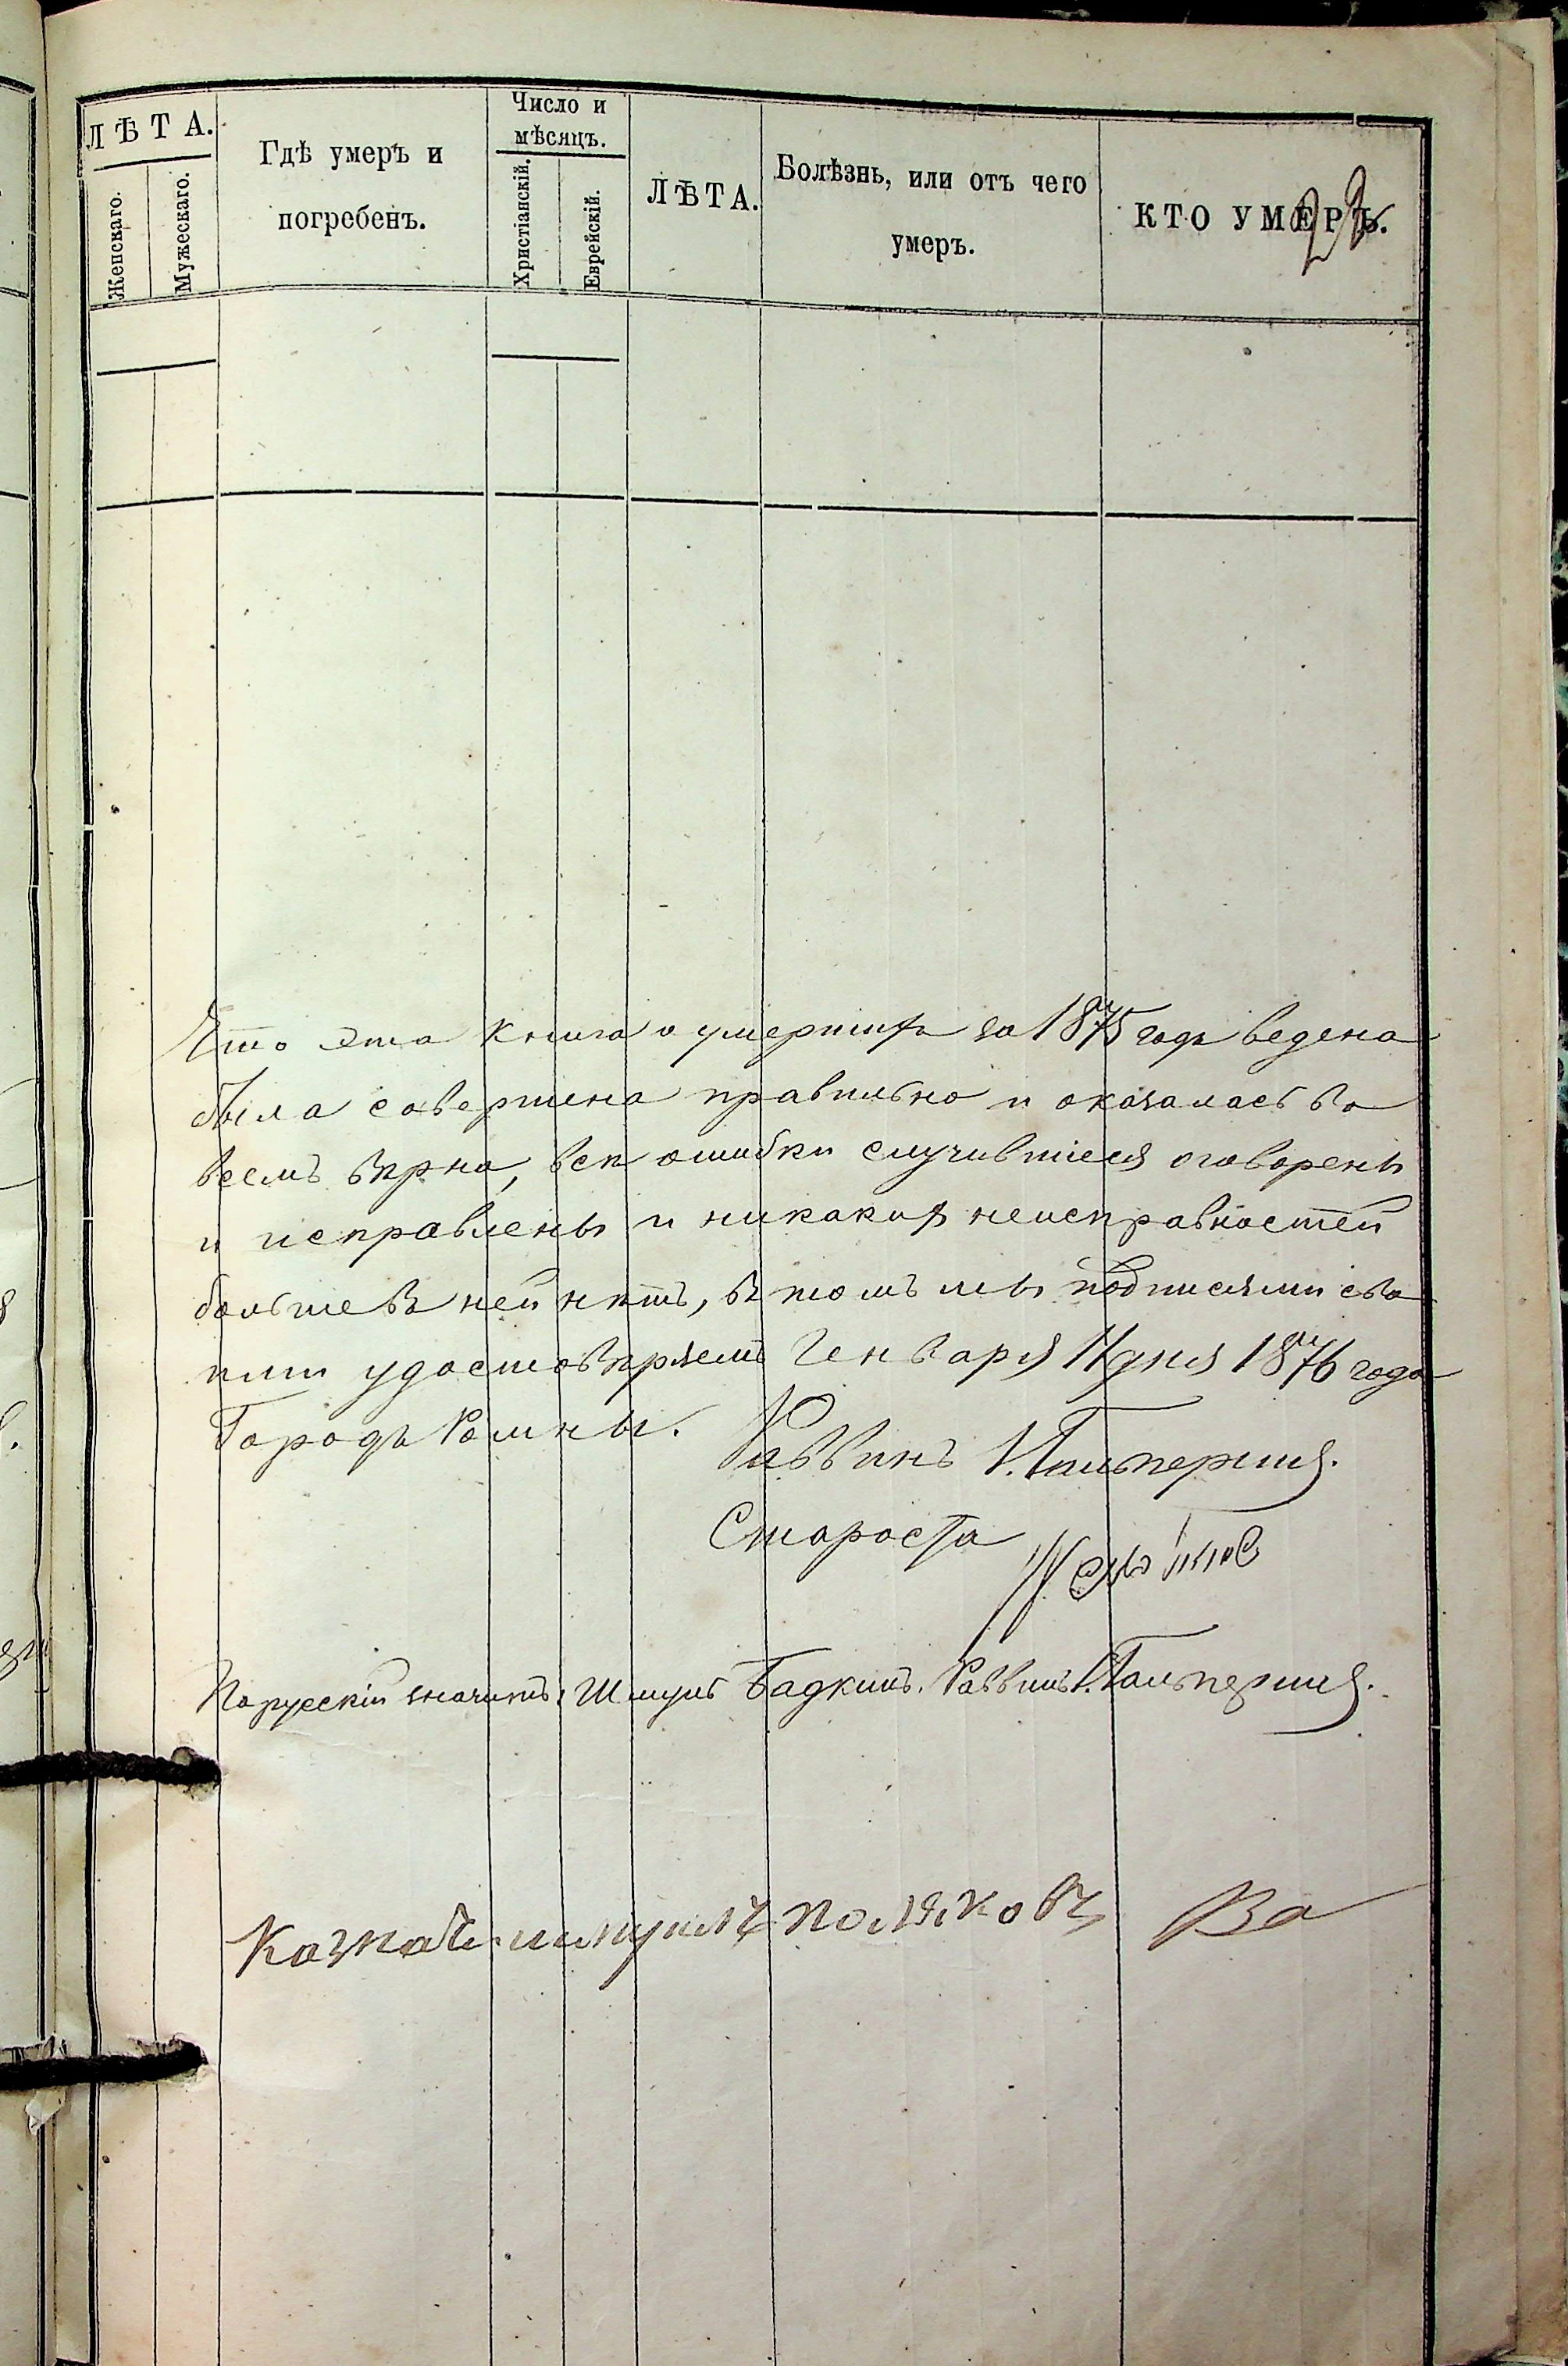 22
ЛѢТА.
Женскаго.
Мужескаго.
Гдѣ умеръ и
погребенъ.
Число и
мѣсяцъ.
Христіанскій.
Еврейскій.
ЛѢТА.
Болѣзнь, или отъ чего
умеръ.
КТО УМЕРЪ.
Что эта книга о умершихъ за 1875 годъ ведена
была совершена правильно и оказалась во
всемъ вѣрна, всѣ ошибки случившіеся оговорены
и исправлены и никакихъ неисправностей
больше въ ней нѣтъ, въ томъ мы подписями сво
ими удостовѣряемъ Генваря 11 дня 1876 года
Городъ Ромны.
Раввинъ И. Гальперинъ.
Староста
По русскій значитъ: Шмуль Бадкинъ. Раввинъ И. Гальперинъ.
Казначей шмуиль Поляковъ